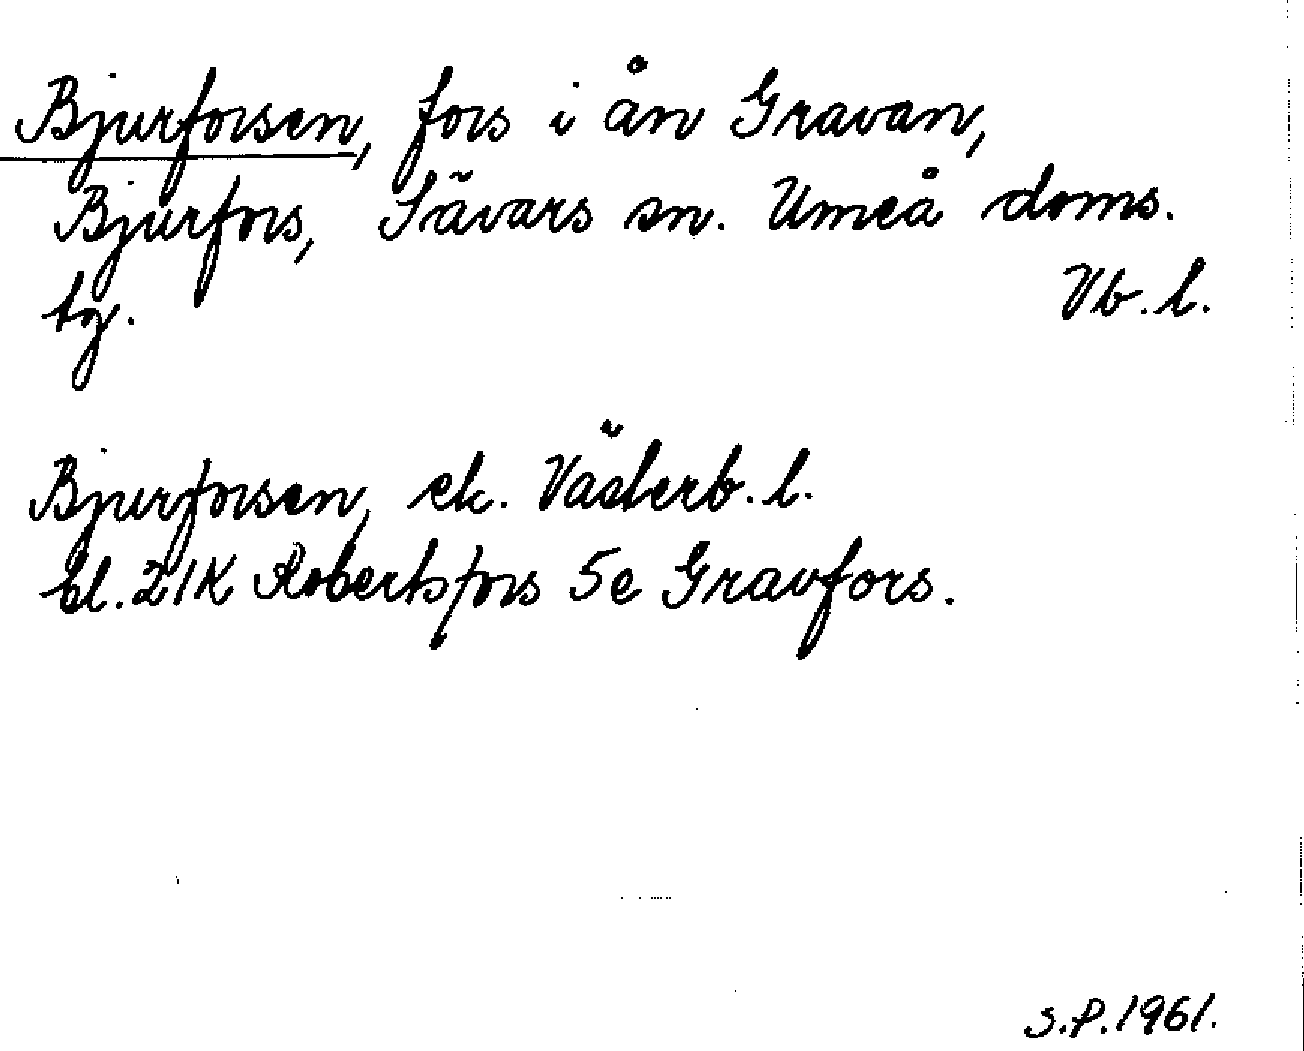 Bjurforsen, fors i ån Gravan,
Bjurfors, Sävars sn. Umeå doms.
tg. Vb.l.
Bjurforsen, ek. Västerb.l.
bl.21K Robertsfors 5e Gravfors.
S.P.1961.